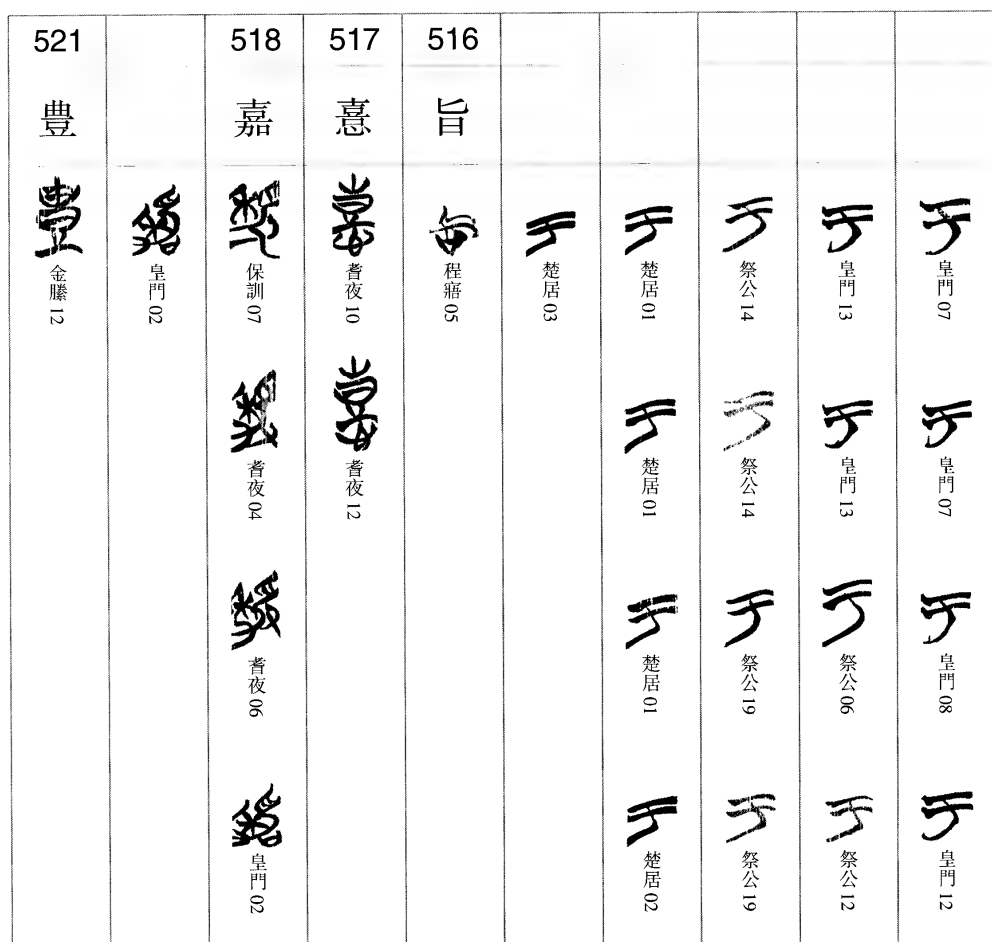 皇門 07
皇門 07
皇門 08
皇門 12
皇門 13
皇門 13
祭公 06
祭公 12
祭公 14
祭公 14
祭公 19
祭公 19
楚居 01
楚居 01
楚居 01
楚居 02
楚居 03
516
旨
程寤 05
517
憙
耆夜 10
耆夜 12
518
嘉
保訓 07
耆夜 04
耆夜 06
皇門 02
皇門 02
521
豊
金縢 12